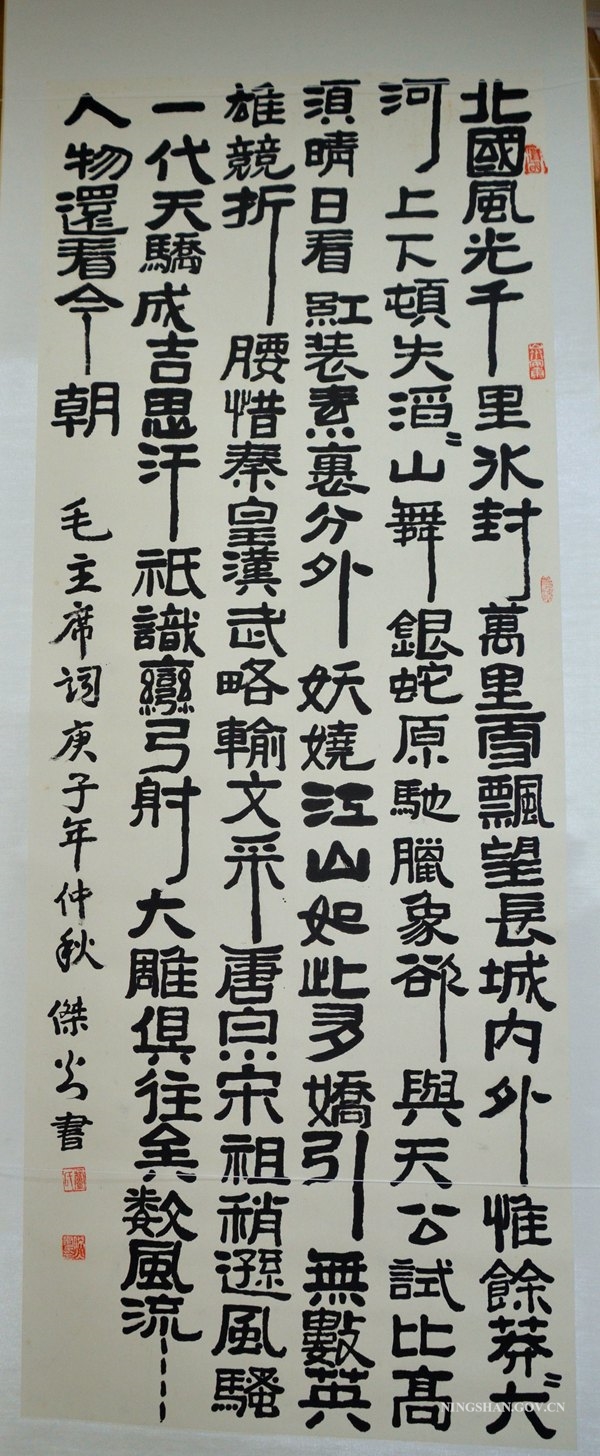 北國風光千里氷封萬里雪飄望長城内外惟餘莽〻大
河上下頓失滔〻山舞銀蛇原馳臘象欲與天公試比高
須晴日看紅装素裹分外妖嬈江山如此多嬌引無數英
雄競折腰惜秦皇漢武略輸文采唐宗宋祖稍遜風騷
一代天驕成吉思汗祇識彎弓射大雕俱往矣数風流
人物還看今朝 毛主席詞庚子年仲秋 傑書
NINGSHAN.GOV.CN